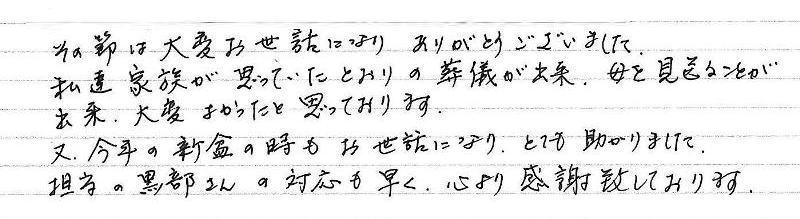 その節は大変お世話になり ありがとうございました.
私達家族が思っていたとおりの葬儀が出来、母を見送ることが
出来、大変よかったと思っております.
又、今年の新盆の時もお世話になり、とても助かりました.
担当の黒部さんの対応も早く、心より感謝致しております.